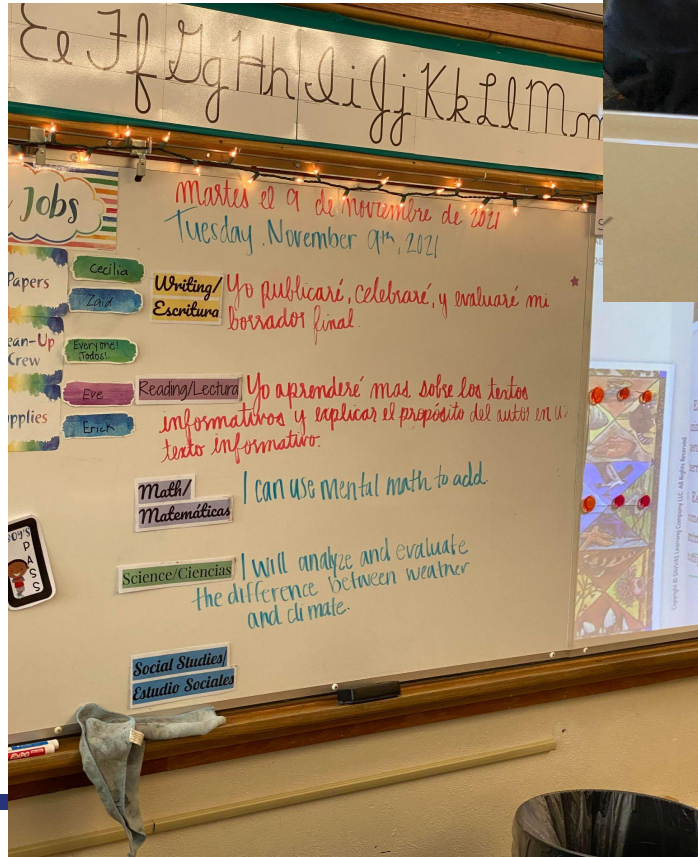 Ee Ff Gg Hh Ii Jj Kk Ll Mm
Jobs
Papers
Cecilia
Zaid
ean-Up
Crew
Everyone!
¡Todos!
Eve
pplies
Erick
martes el 9 de noviembre de 2021
Tuesday, November 9th, 2021
Writing/
Escritura
Yo publicaré, celebraré, y evaluaré mi
borrador final.
Reading/Lectura
Yo aprenderé mas sobre los textos
informativos y explicar el propósito del autor en u
texto informativo.
Math/
Matemáticas
I can use mental math to add.
Science/Ciencias
I will analyze and evaluate
the difference between weather
and climate.
Social Studies/
Estudio Sociales
OY'S
PASS
EXPO
Learning Company LLC. All Rights Reserved.